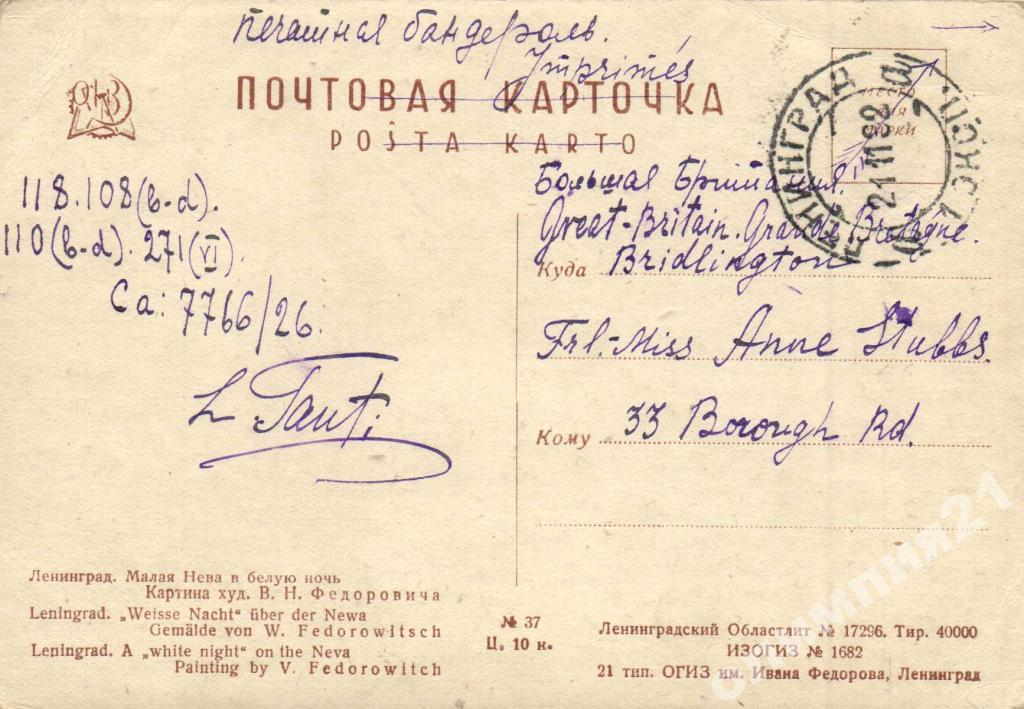 печатная бандероль.
Imprimés
ПОЧТОВАЯ КАРТОЧКА
POŜTA KARTO
МЕСТО
ДЛЯ
МАРКИ
21 11 32
118.108(b-d).
110(b-d). 271(VI).
Ca: 7766/26.
Большая Британия.
Great-Britain. Grande Bretagne.
Куда Bridlington
Frl.-Miss Anne Stubbs.
Кому 33 Borough Rd.
Ленинград. Малая Нева в белую ночь
Картина худ. В. Н. Федоровича
Leningrad. „Weisse Nacht" über der Newa
Gemälde von W. Fedorowitsch
Leningrad. A „white night" on the Neva
Painting by V. Fedorowitch
№ 37
Ц. 10 к.
Ленинградский Областлит № 17296. Тир. 40000
ИЗОГИЗ № 1682
21 тип. ОГИЗ им. Ивана Федорова, Ленинград
олимпия21